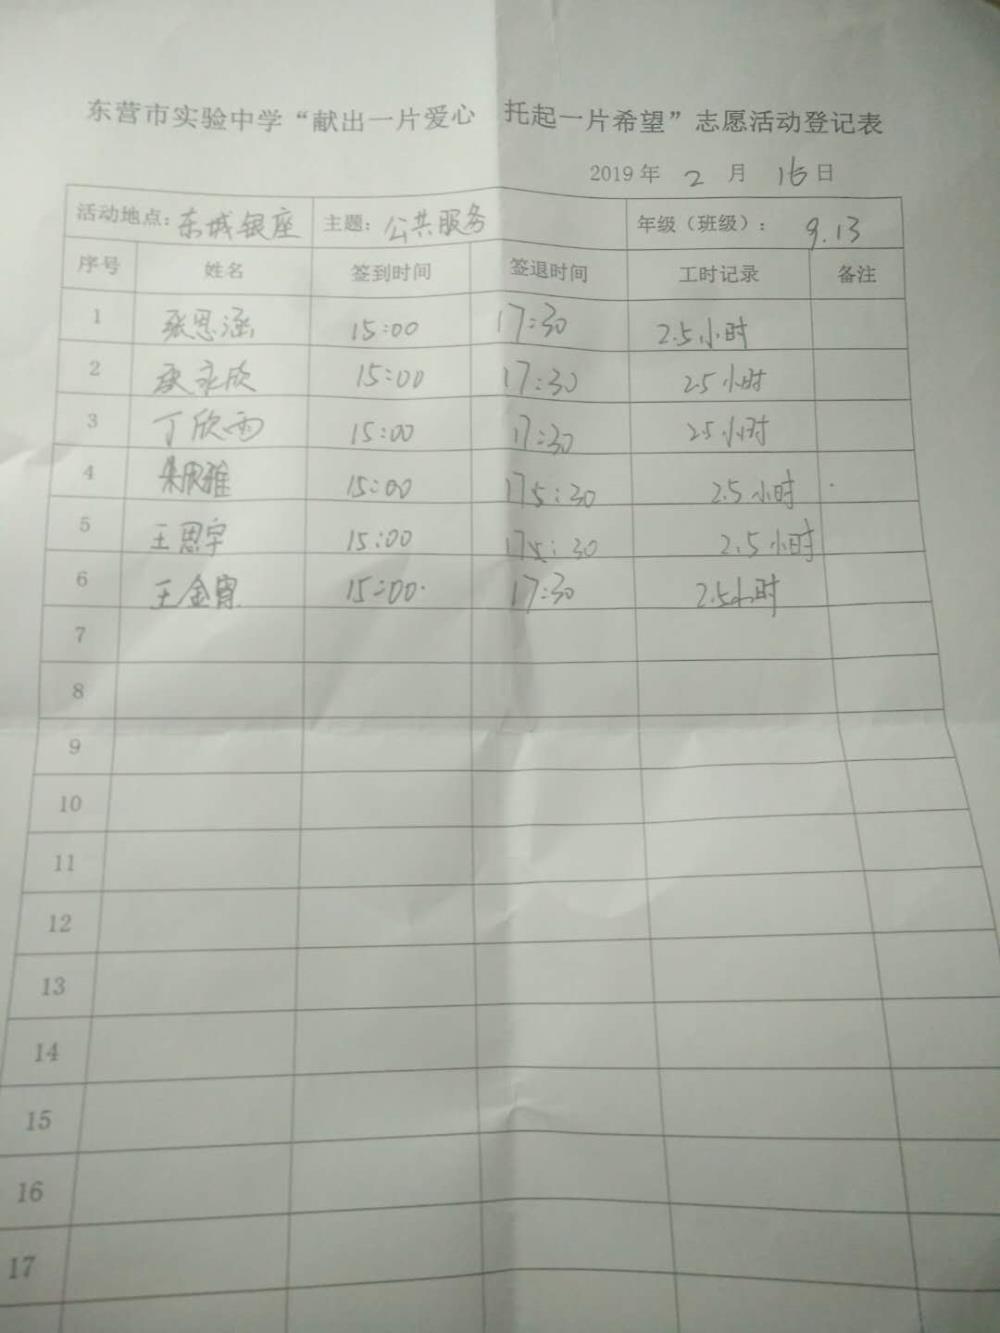 东营市实验中学“献出一片爱心 托起一片希望”志愿活动登记表
2019年 2 月 16 日
活动地点：东城银座 主题：公共服务 年级（班级）： 9.13
序号 姓名 签到时间 签退时间 工时记录 备注
1 张恩涵 15:00 17:30 2.5小时
2 永欣 15:00 17:30 2.5小时
3 丁欣雨 15:00 17:30 2.5小时
4 朱雅 15:00 17:30 2.5小时
5 王恩宇 15:00 17:30 2.5小时
6 王金 15:00 17:30 2.5小时
7
8
9
10
11
12
13
14
15
16
17